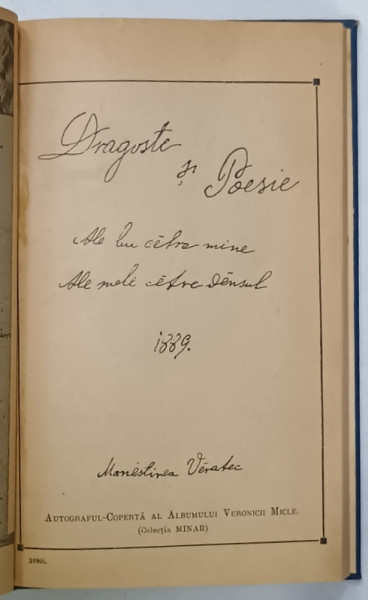 Dragoste
și Poesie
Ale lui cĕtre mine
Ale mele cĕtre dênsul
1889.
Manĕstirea Vĕratec
AUTOGRAFUL-COPERTĂ AL ALBUMULUI VERONICII MICLE.
(Colecția MINAR)